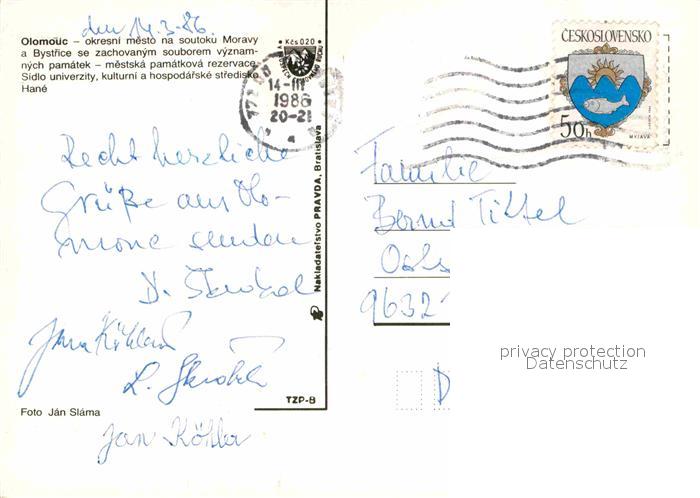 den 14.3.86.
Olomouc – okresní město na soutoku Moravy
a Bystřice se zachovaným souborem význam-
ných památek – městská památková rezervace.
Sídlo univerzity, kulturní a hospodářské středisko
Hané
Kčs 0,20
14-III
1986
20-21
ČESKOSLOVENSKO
50h
MYJAVA
Recht herzliche
Grüße aus Olo-
senden
D. Škrobal
Jana Köhler
L. Škrobal
Jan Köhler
Nakladatelstvo PRAVDA, Bratislava
TZP-B
Foto Ján Sláma
Familie
Bernd Tittel
9632
D
privacy protection
Datenschutz